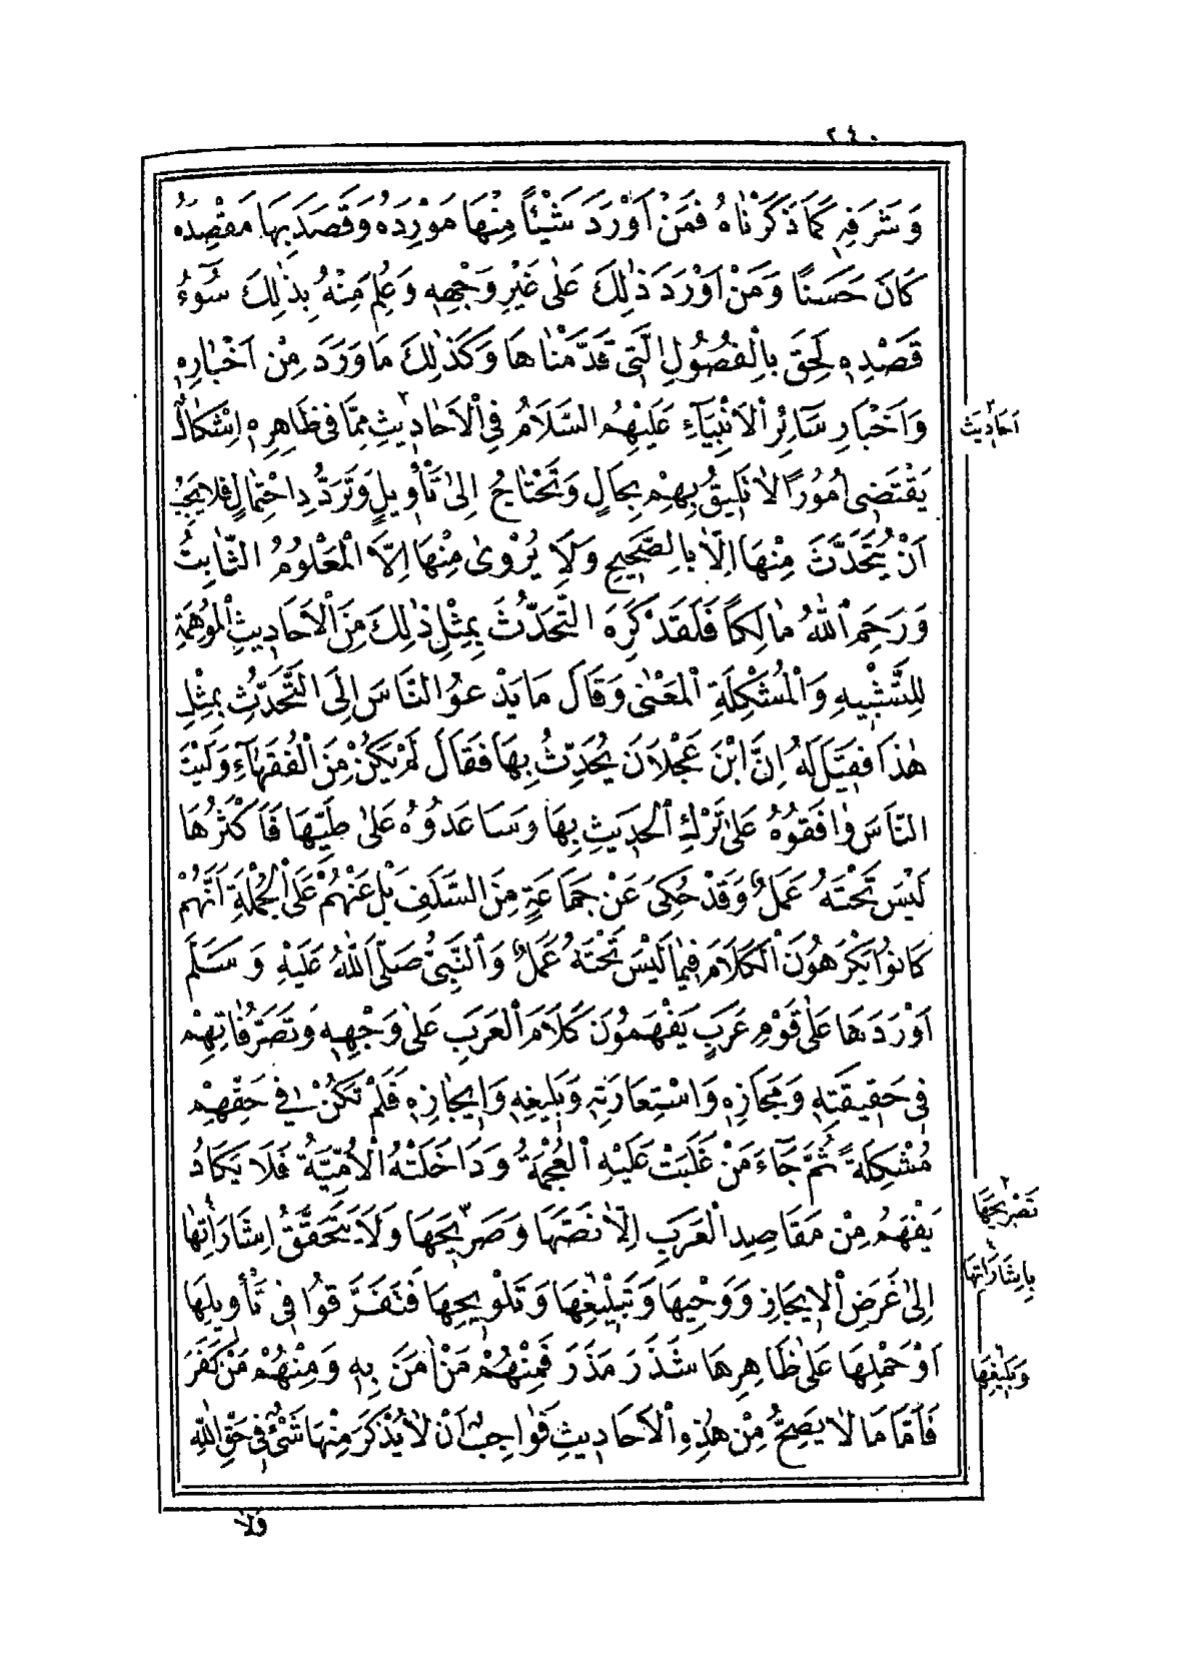 ٢٤٠
وَشَرَفِهِ كَمَا ذَكَرْنَاهُ فَمَنْ اَوْرَدَ شَيْئًا مِنْهَا مَوْرِدَهُ وَقَصَدَ بِهَا مَقْصِدَهُ
كَانَ حَسَنًا وَمَنْ اَوْرَدَ ذٰلِكَ عَلٰى غَيْرِ وَجْهِهِ وَعُلِمَ مِنْهُ بِذٰلِكَ سُوٓءُ
قَصْدِهِ لَحِقَ بِالْفُصُولِ الَّتِى قَدَّمْنَاهَا وَكَذٰلِكَ مَا وَرَدَ مِنْ اَخْبَارِهِ
وَاَخْبَارِ سَائِرِ الْاَنْبِيَآءِ عَلَيْهِمُ السَّلَامُ فِى الْاَحَادِيثِ مِمَّا فِى ظَاهِرِهِ اِشْكَالٌ
اَحَادِيثَ
يَقْتَضِى اُمُورًا لَا تَلِيقُ بِهِمْ بِحَالٍ وَتَحْتَاجُ اِلٰى تَأْوِيلٍ وَتَرَدُّدِ احْتِمَالٍ فَلَا يَجِبُ
اَنْ يُتَحَدَّثَ مِنْهَا اِلَّا بِالصَّحِيحِ وَلَا يُرْوٰى مِنْهَا اِلَّا الْمَعْلُومُ الثَّابِتُ
وَرَحِمَ اللّٰهُ مَالِكًا فَلَقَدْ كَرِهَ التَّحَدُّثَ بِمِثْلِ ذٰلِكَ مِنَ الْاَحَادِيثِ الْمُوهِمَةِ
لِلتَّشْبِيهِ وَالْمُشْكِلَةِ الْمَعْنٰى وَقَالَ مَا يَدْعُو النَّاسَ اِلَى التَّحَدُّثِ بِمِثْلِ
هٰذَا فَقِيلَ لَهُ اِنَّ ابْنَ عَجْلَانَ يُحَدِّثُ بِهَا فَقَالَ لَمْ يَكُنْ مِنَ الْفُقَهَآءِ وَلَيْتَ
النَّاسَ وَافَقُوهُ عَلٰى تَرْكِ الْحَدِيثِ بِهَا وَسَاعَدُوهُ عَلٰى طَيِّهَا فَاَكْثَرُهَا
لَيْسَ تَحْتَهُ عَمَلٌ وَقَدْ حُكِىَ عَنْ جَمَاعَةٍ مِنَ السَّلَفِ بَلْ عَنْهُمْ عَلَى الْجُمْلَةِ اَنَّهُمْ
كَانُوا يَكْرَهُونَ الْكَلَامَ فِيمَا لَيْسَ تَحْتَهُ عَمَلٌ وَالنَّبِىُّ صَلَّى اللّٰهُ عَلَيْهِ وَسَلَّمَ
اَوْرَدَهَا عَلٰى قَوْمٍ عَرَبٍ يَفْهَمُونَ كَلَامَ الْعَرَبِ عَلٰى وَجْهِهِ وَتَصَرُّفَاتِهِمْ
فِى حَقِيقَتِهِ وَمَجَازِهِ وَاسْتِعَارَتِهِ وَبَلِيغِهِ وَاِيجَازِهِ فَلَمْ تَكُنْ فِى حَقِّهِمْ
مُشْكِلَةً ثُمَّ جَآءَ مَنْ غَلَبَتْ عَلَيْهِ الْعُجْمَةُ وَدَاخَلَتْهُ الْاُمِّيَّةُ فَلَا يَكَادُ
يَفْهَمُ مِنْ مَقَاصِدِ الْعَرَبِ اِلَّا نَصَّهَا وَصَرِيحَهَا وَلَا يَتَحَقَّقُ اِشَارَاتِهَا
تَصْرِيحَهَا
بِاِشَارَاتِهَا
اِلٰى غَرَضِ الْاِيجَازِ وَوَحْيِهَا وَتَبْلِيغِهَا وَتَلْوِيحِهَا فَتَفَرَّقُوا فِى تَأْوِيلِهَا
اَوْ حَمْلِهَا عَلٰى ظَاهِرِهَا شَذَرَ مَذَرَ فَمِنْهُمْ مَنْ اٰمَنَ بِهِ وَمِنْهُمْ مَنْ كَفَرَ
وَبَلِيغِهَا
فَاَمَّا مَا لَا يَصِحُّ مِنْ هٰذِهِ الْاَحَادِيثِ فَوَاجِبٌ اَنْ لَا يُذْكَرَ مِنْهَا شَىْءٌ فِى حَقِّ اللّٰهِ
وَلَا